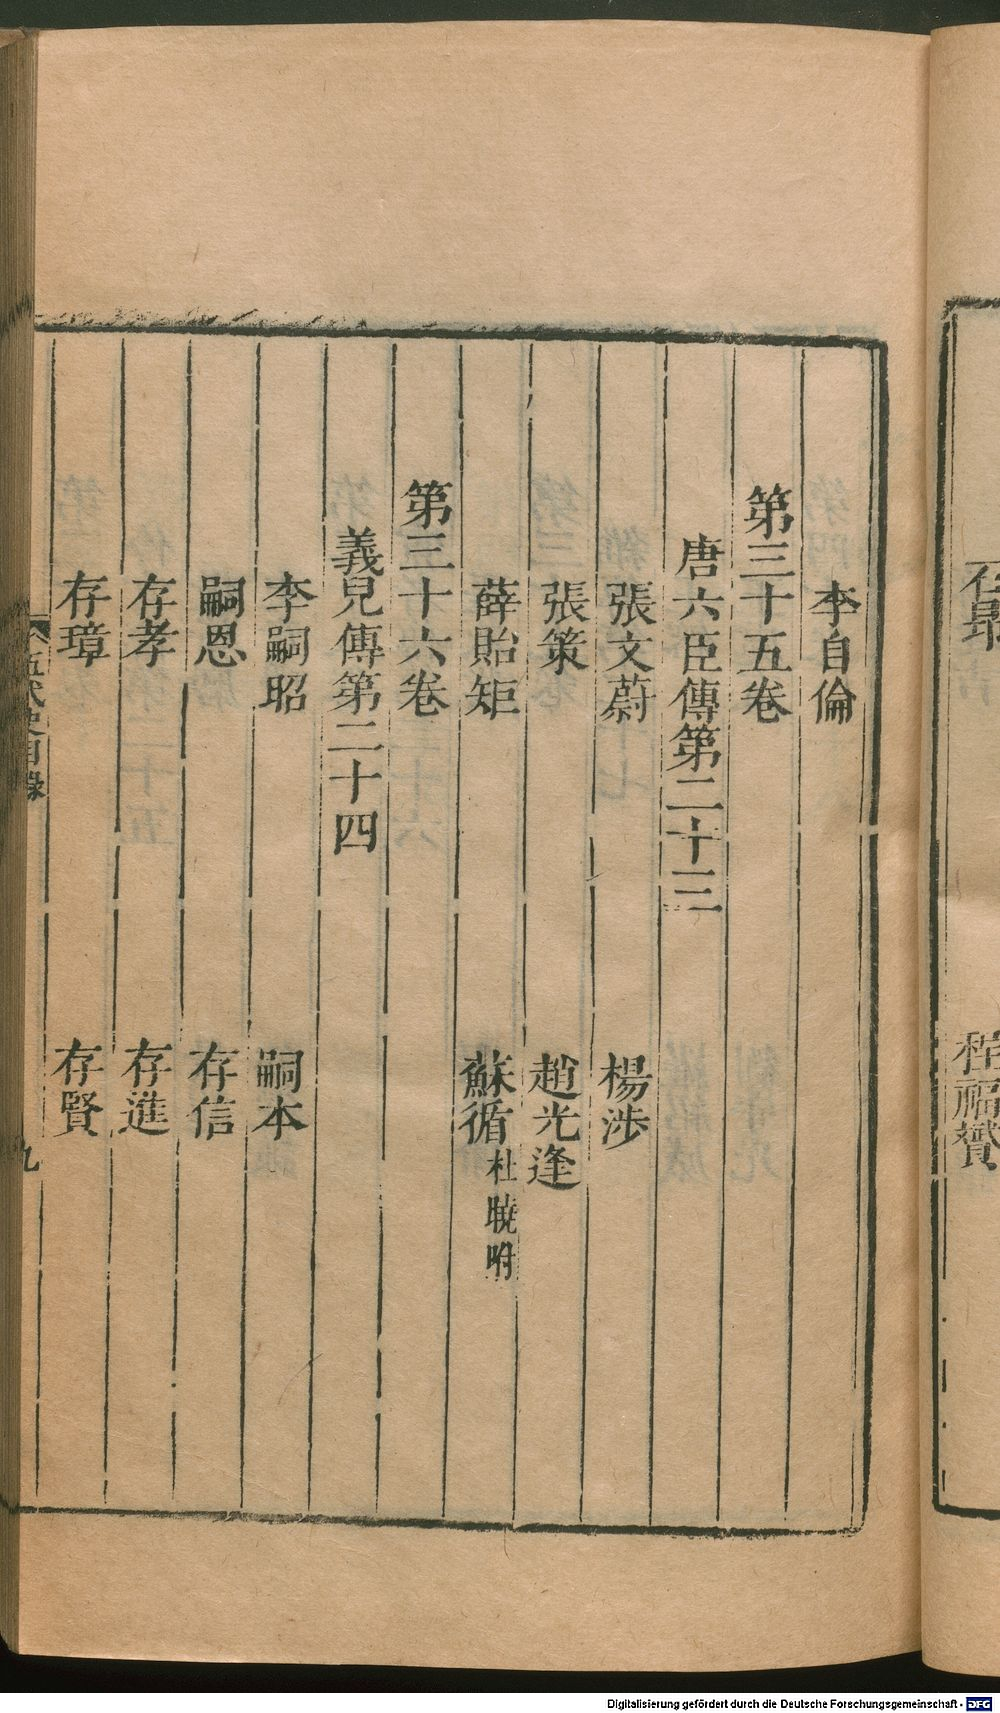 李自倫
第三十五卷
唐六臣傳第二十三
張文蔚 楊渉
張策 趙光逢
薛貽矩 蘇循 杜曉附
第三十六卷
義兒傳第二十四
李嗣昭 嗣本
嗣恩 存信
存孝 存進
存璋 存賢
五代史目錄 九
程福贇
Digitalisierung gefördert durch die Deutsche Forschungsgemeinschaft - DFG